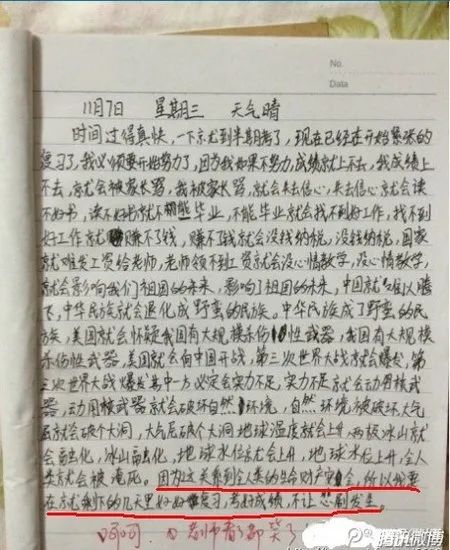 No.
Data
11月7日 星期三 天气晴
时间过得真快,一下京尤到半期考了,现在已经在开始紧张的
复习了,我必须要开始努力了,因为我如果不努力,成绩就上不去,我成绩上
不去,就会被家长骂,我被家长骂,就会失去信心,失去信心就会读
不好书,读不好书就不能毕业,不能毕业就会找不到好工作,找不到
好工作就赚不了钱,赚不了钱就会没钱纳税,没钱纳税,国家
就难发工资给老师,老师领不到工资就会没心情教学,没心情教学,
就会影响我们祖国的未来,影响了祖国的未来,中国就难以腾
飞,中华民族就会退化成野蛮的民族。中华民族成了野蛮的民
族,美国就会怀疑我国有大规模杀伤性武器,我国有大规模
杀伤性武器,美国就会向中国开战,第三次世界大战就会爆发,第
三次世界大战爆发其中一方必定会实力不足,实力不足就会动用核武
器,动用核武器就会破坏自然环境,自然环境被破坏大气
层就会破个大洞,大气层破个大洞地球温度就会上升,两极冰山就
会融化,冰山融化,地球水位就会上升,地球水位上升,全人
类就会被淹死。因为这关系到全人类的生命财产安全,所以我要
在就剩下的几天里好好复习,考好成绩,不让悲剧发生。
呵呵,老师看了都笑了
腾讯微博